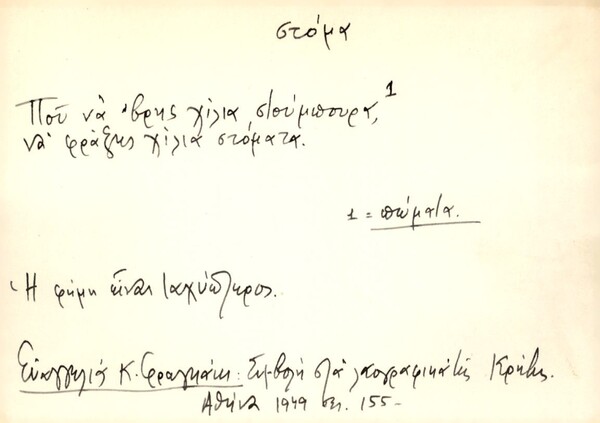 στόμα
Ποῦ νὰ 'βρῃς χίλια στούμπουρα,¹
νὰ φράξῃς χίλια στόματα.
1 = πώματα.
Ἡ φήμη εἶναι ταχύπτερος.
Εὐαγγελιάς Κ. Φραγκάκι: Συμβολὴ στὰ λαογραφικὰ τῆς Κρήτης.
Ἀθήνα 1949 σελ. 155-